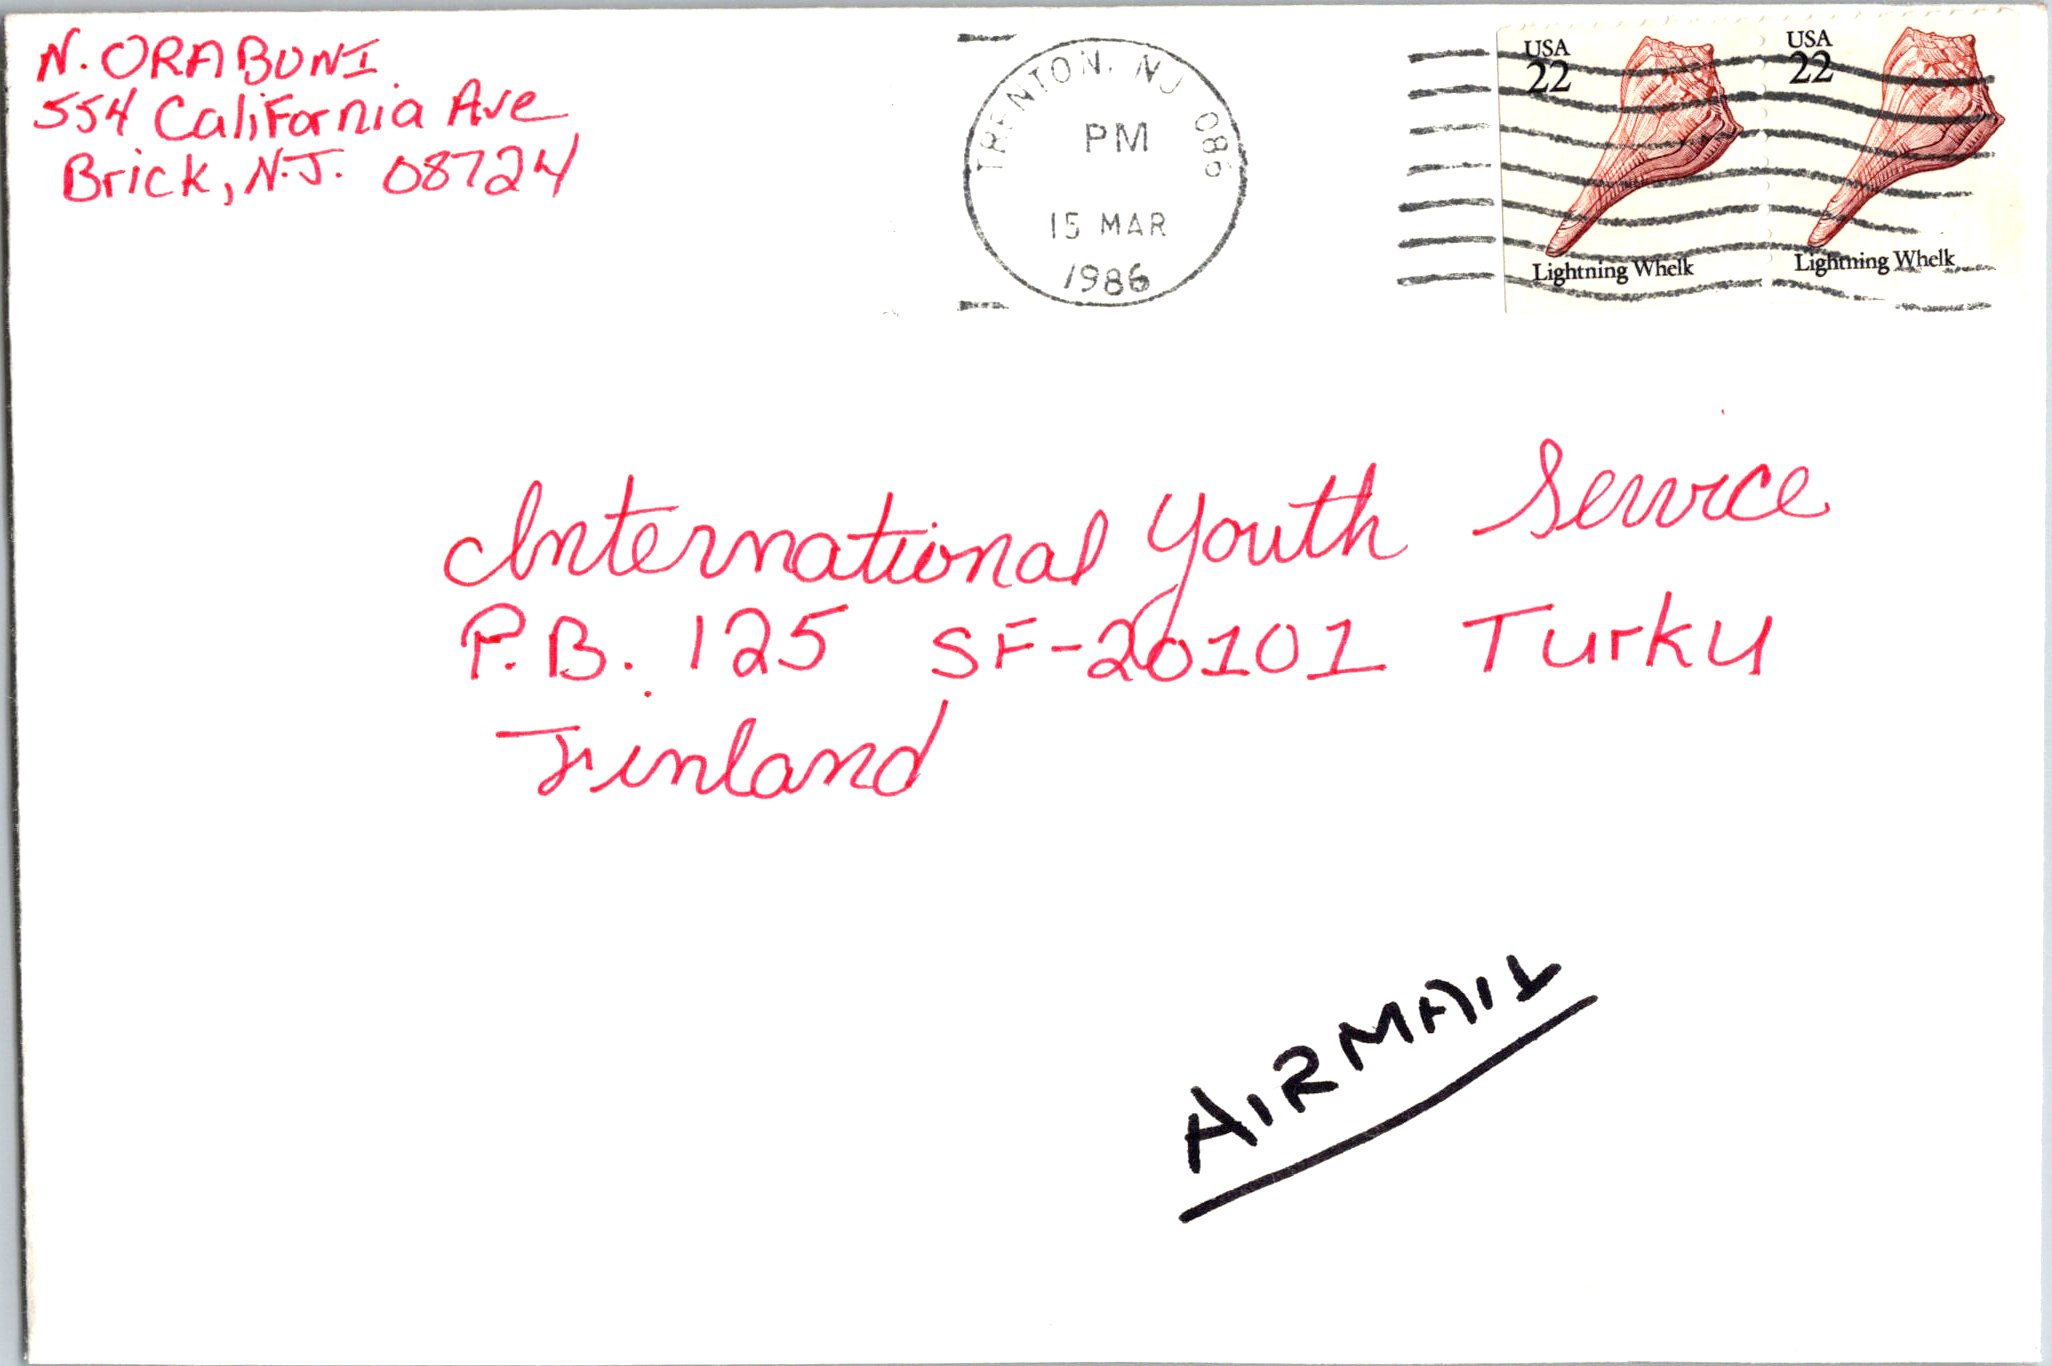 N. ORABONI
554 California Ave
Brick, N.J. 08724
TRENTON, NJ 086
PM
15 MAR
1986
USA
22
Lightning Whelk
USA
22
Lightning Whelk
International Youth Service
P.B. 125 SF-20101 Turku
Finland
AIRMAIL